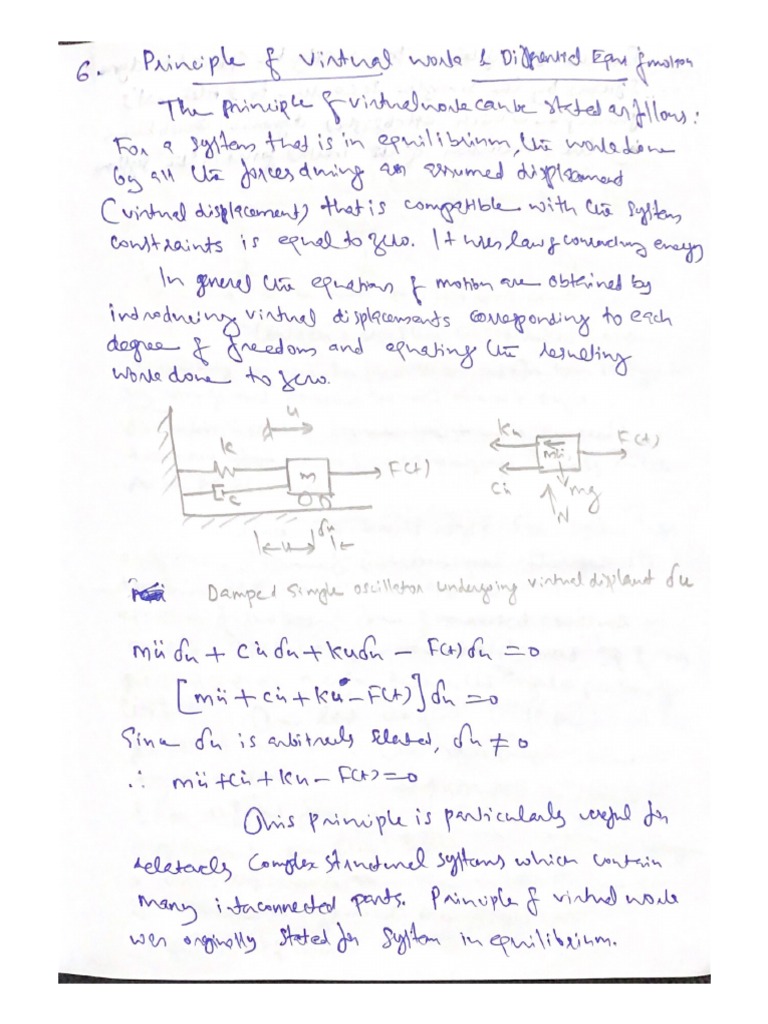 6. Principle of virtual work & Differential Eqns of motion
The principle of virtual work can be stated as follows:
For a system that is in equilibrium, the work done
by all the forces during an assumed displacement
(virtual displacement) that is compatible with the system
constraints is equal to zero. It uses law of energy
In general the equations of motion are obtained by
introducing virtual displacements corresponding to each
degree of freedom and equating the resulting
work done to zero.
u
K
m
F(t)
c
u
δu
Ku
mü
F(t)
Cu̇
mg
N
Damped simple oscillator undergoing virtual δu
mü δu + Cu̇ δu + Ku δu - F(t) δu = 0
[mü + cu̇ + Ku - F(t)] δu = 0
Since δu is δu ≠ 0
∴ mü + Cu̇ + Ku - F(t) = 0
This principle is particularly useful for
relatively complex structural systems which contain
many interconnected parts. Principle of virtual work
was originally stated for system in equilibrium.